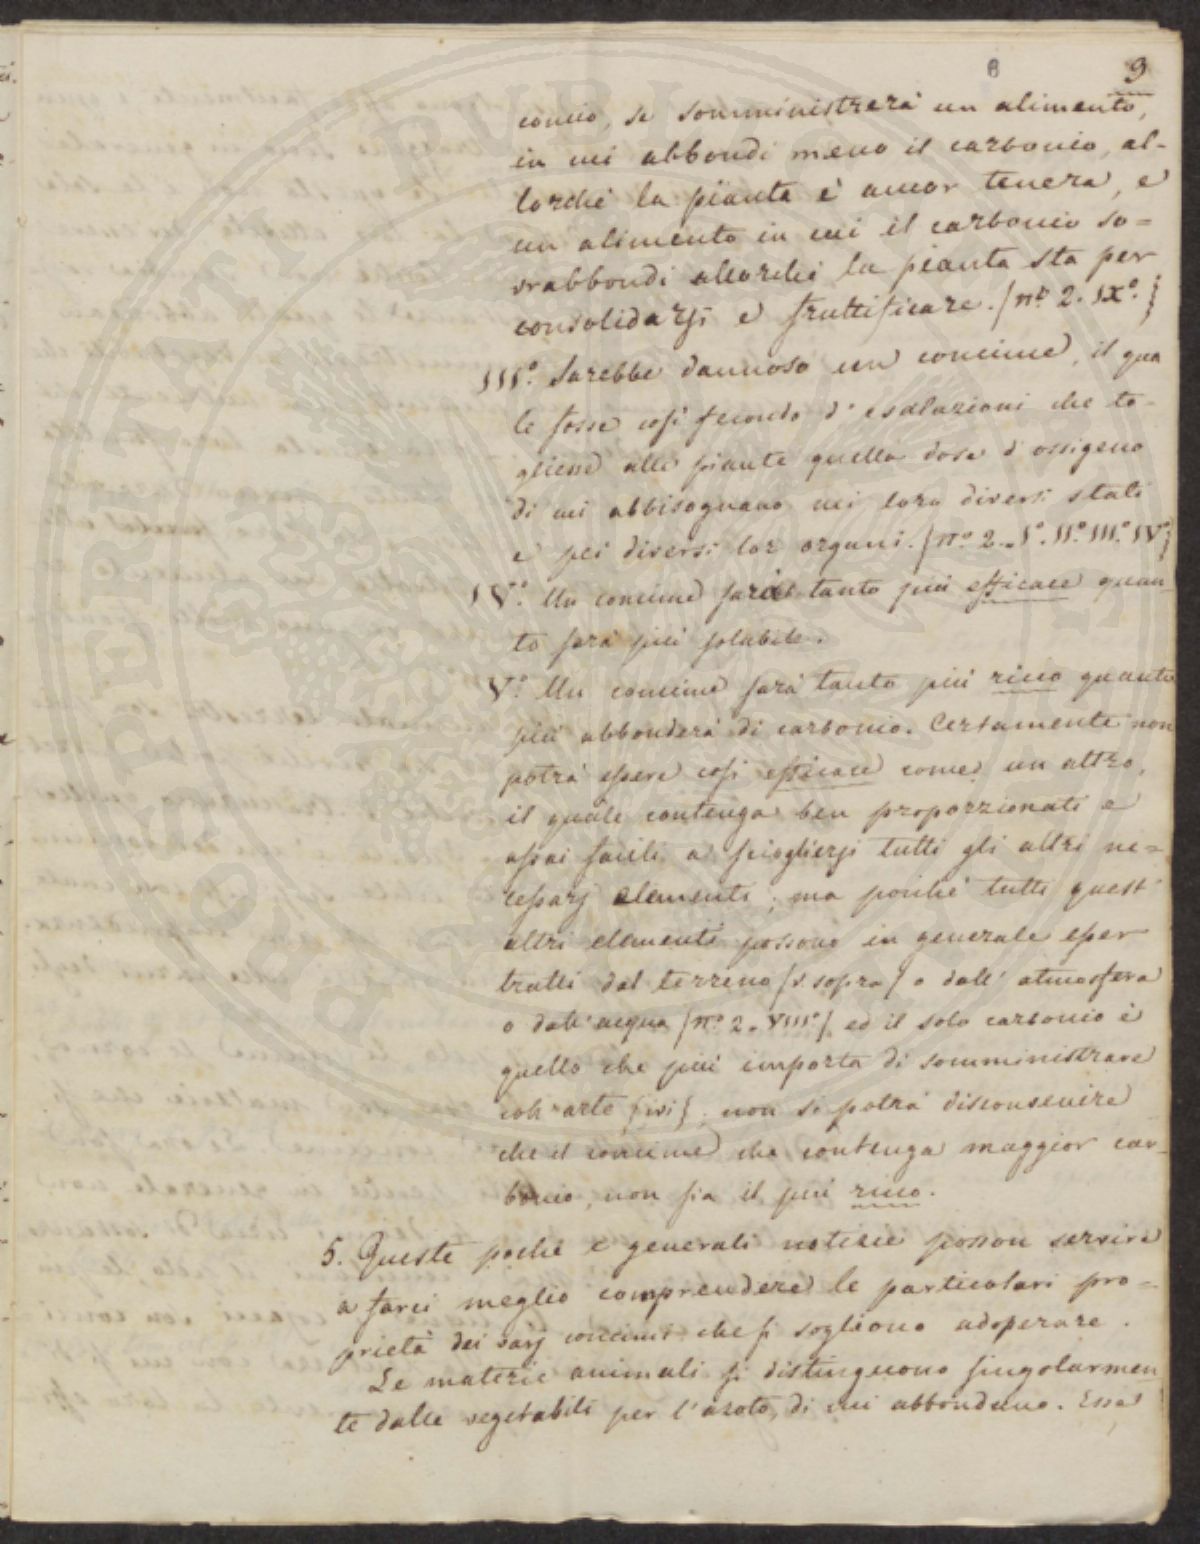 8 9
concio, se somministrerà un alimento,
in cui abbondi meno il carbonio, al-
lorchè la pianta è ancor tenera, e
un alimento in cui il carbonio so=
vrabbondi allorchè la pianta sta per
consolidarsi e fruttificare. (n.º 2. IXº.)
IIIº. Sarebbe dannoso un concime, il qua
le fosse così fecondo d'esalazioni che to-
gliesse alle piante quella dose d'ossigeno
di cui abbisognano nei loro diversi stati
e pei diversi lor organi. (nº 2. Iº. IIº. IIIº. IVº)
IVº. Un concime sarà tanto più efficace quan-
to sarà più solubile.
Vº. Un concime sarà tanto più ricco quanto
più abbonderà di carbonio. Certamente non
potrà essere così efficace come un altro,
il quale contenga ben proporzionati e
assai facili a sciogliersi tutti gli altri ne=
cessarj elementi; ma poichè tutti quest'
altri elementi possono in generale esser
tratti dal terreno (v. sopra) o dall'atmosfera
o dall'acqua (nº 2. VIIIº.) ed il solo carbonio è
quello che più importa di somministrare
coll'arte (ivi); non si potrà disconvenire
che il concime che contenga maggior car-
bonio, non sia il più ricco.
5. Queste poche e generali notizie posson servire
a farci meglio comprendere le particolari pro=
prietà dei varj concimi che si sogliono adoperare.
Le materie animali si distinguono singolarmen
te dalle vegetabili per l'azoto, di cui abbondano. Esse
PROSPERITATI PUBLICAE